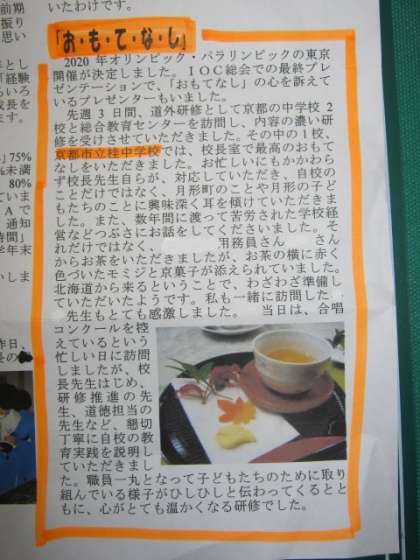 「お・も・て・な・し」
2020 年オリンピック・パラリンピックの東京
開催が決定しました。ＩＯＣ総会での最終プレ
ゼンテーションで、「おもてなし」の心を訴えて
いるプレゼンターもいました。
先週 3 日間、道外研修として京都の中学校 2
校と総合教育センターを訪問し、内容の濃い研
修を受けさせていただきました。その中の1校、
京都市立桂中学校では、校長室で最高のおもて
なしをいただきました。お忙しいにもかかわら
ず校長先生自らが、対応していただき、自校の
ことだけではなく、月形町のことや月形の子ど
もたちのことに興味深く耳を傾けていただきま
した。また、数年間に渡って苦労された学校経
営などつぶさにお話をしてくださいました。そ
れだけではなく、 用務員さん さん
からお茶をいただきましたが、お茶の横に赤く
色づいたモミジと京菓子が添えられていました。
北海道から来るということで、わざわざ準備し
ていただいたようです。私も一緒に訪問した
先生もとても感激しました。 当日は、合唱
コンクールを控
えているという
忙しい日に訪問
しましたが、校
長先生はじめ、
研修推進の先
生、道徳担当の
先生など、懇切
丁寧に自校の教
育実践を説明し
ていただきまし
た。職員一丸となって子どもたちのために取り
組んでいる様子がひしひしと伝わってくるとと
もに、心がとても温かくなる研修でした。
前期
振り
思い
とし
「経験
いろい
成長を
ます。
75%
%未満
80%
ていま
Ａで
通知
時間」
学年末
いしま
昨日、
長の